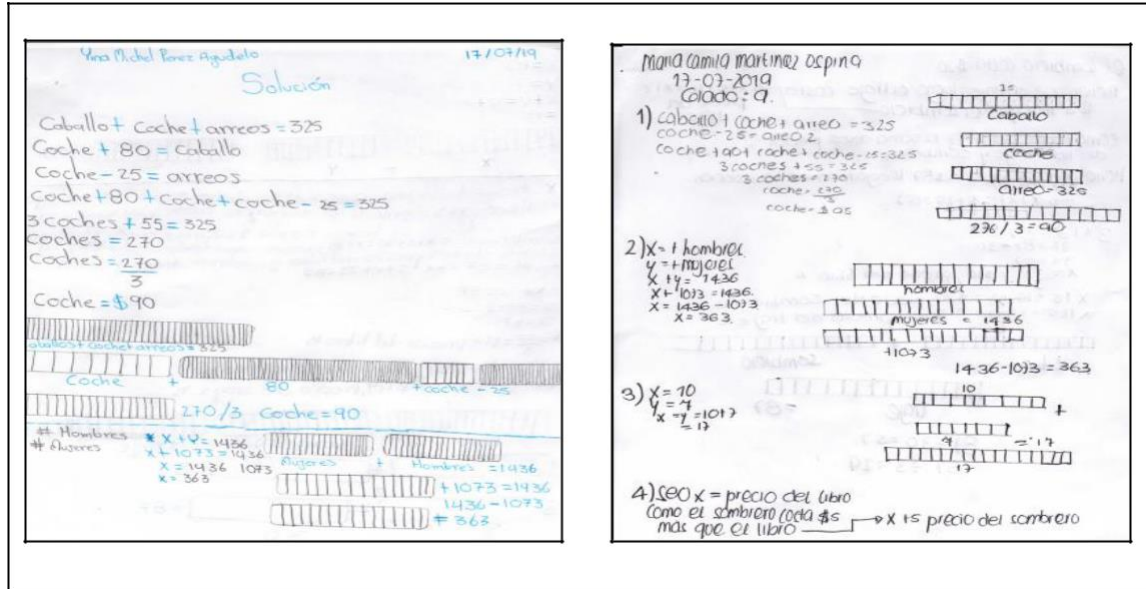 Yina Michel Perez Agudelo 17/07/19
Solución
Caballo + Coche + arreos = 325
Coche + 80 = Caballo
Coche - 25 = arreos
Coche + 80 + Coche + coche - 25 = 325
3 coches + 55 = 325
coches = 270
Coches = 270
3
Coche = $90
aballo + coche + arreos = 325
Coche + 80 + coche - 25
270/3 Coche = 90
# Hombres * X + Y = 1436
# Mujeres X + 1073 = 1436
X = 1436 1073
X = 363
Mujeres + Hombres = 1436
+ 1073 = 1936
1436 - 1073
# 363
Maria Camila Martinez Ospina
17-07-2019
Grado: 9.
15
1) caballo + coche + arreo = 325
Caballo
coche - 25 = arreo 2
coche + coche - 25 = 325
coche
3 coches + 55 = 325
3 coches = 270
arreo = 325
coche = 270
3
276 / 3 = 90
2) x = + hombres
y = + mujeres
x + y = 1436
x + 1073 = 1436
x = 1436 - 1073
x = 363
hombres
mujeres = 1436
+1073
1436 - 1073 = 363
3) x = 10
y = 7
x - y = 10+7
= 17
10
+
= 17
17
4) seo x = precio del libro
como el sombrero costa $5
mas que el libro → x + 5 precio del sombrero